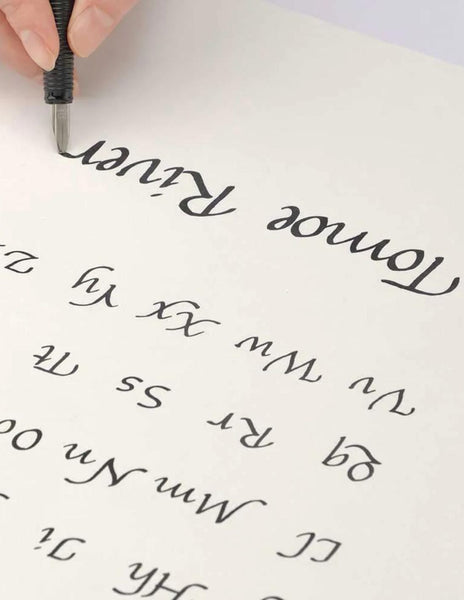 Hh Ii
Ll Mm Nn Oo
Qq Rr Ss Tt
Vv Ww Xx Yy Zz
Tomoe River